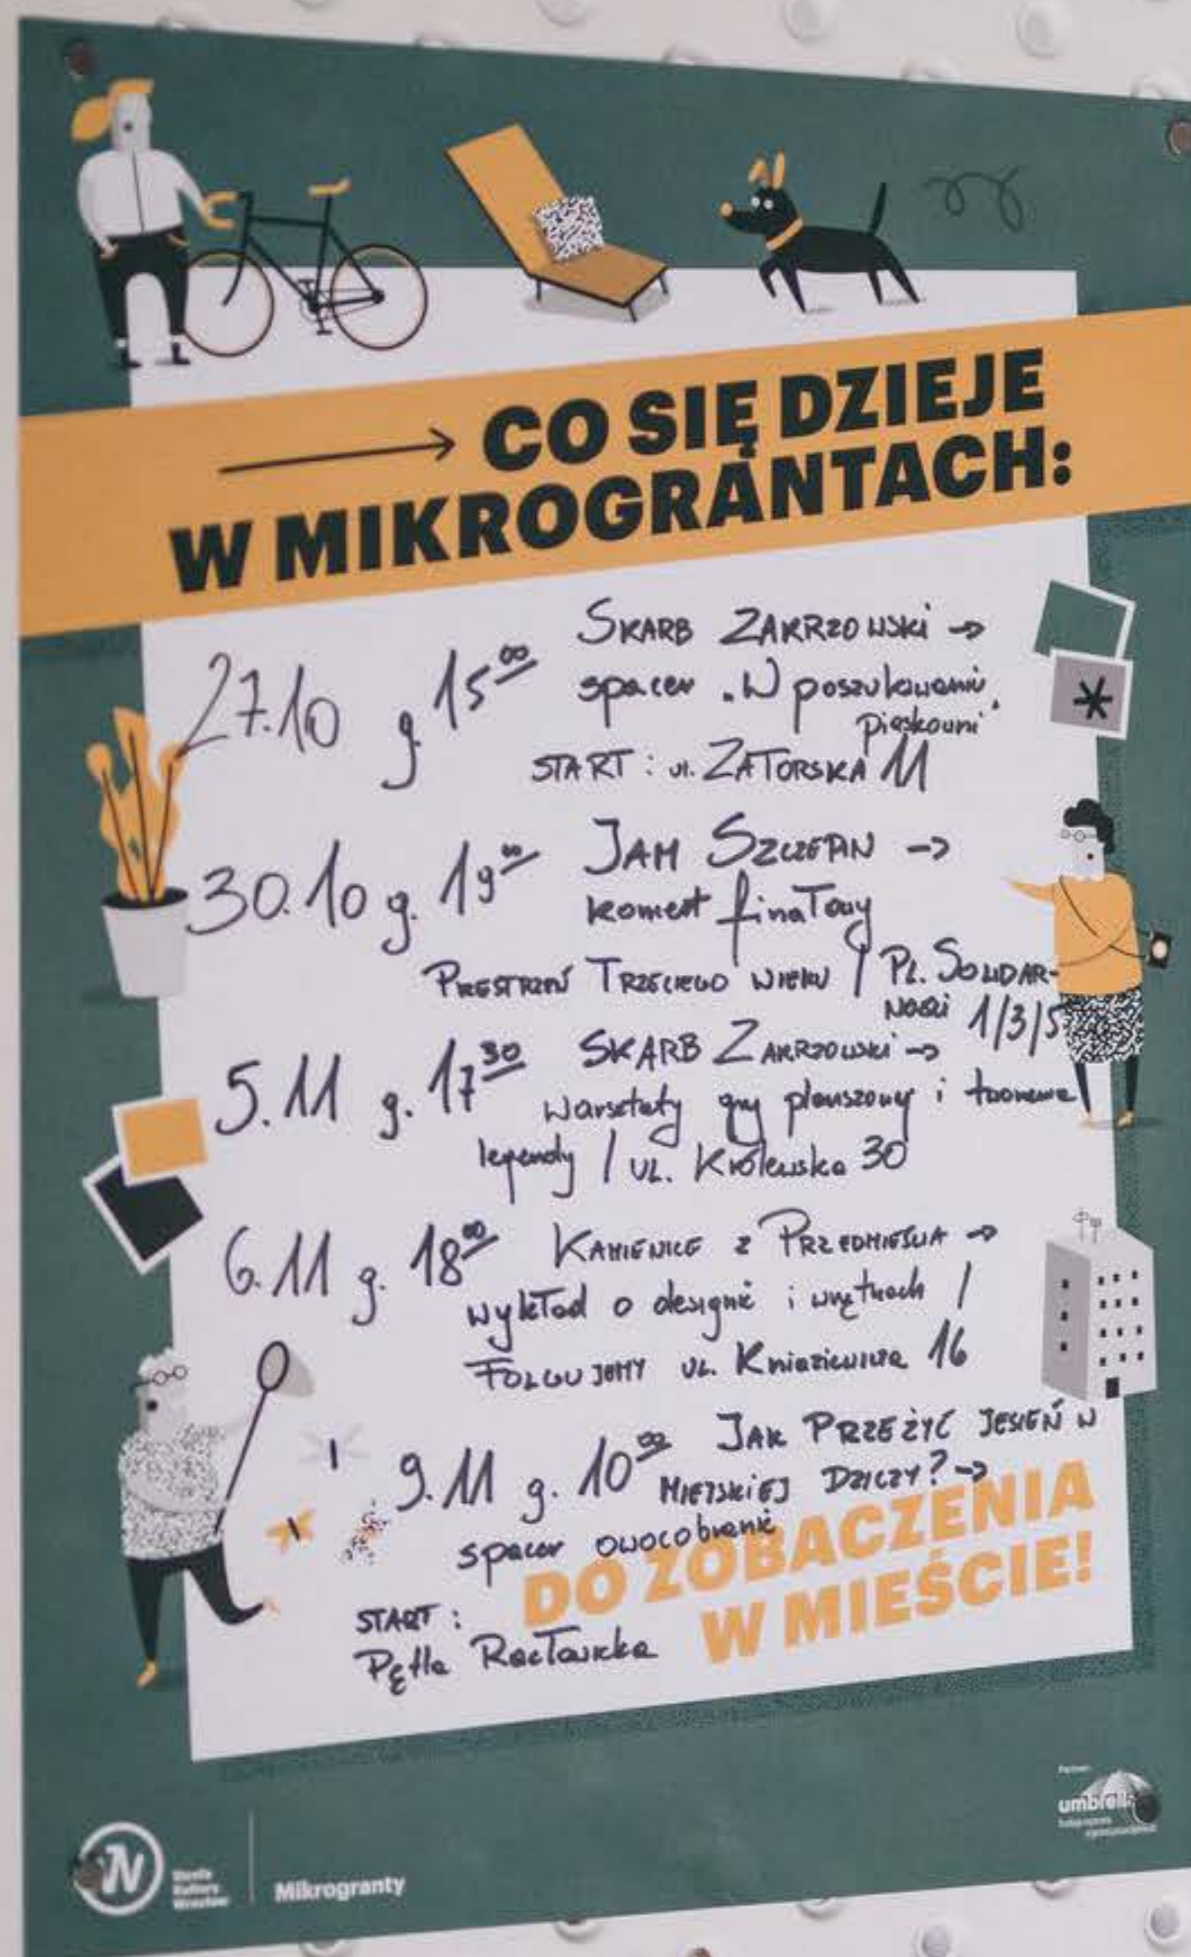 CO SIĘ DZIEJE
W MIKROGRANTACH:
27.10 g. 15⁰⁰ SKARB ZAKRZOWSKI →
spacer „W poszukiwaniu
piaskowni"
START: ul. ZATORSKA 11
30.10 g. 19⁰⁰ JAM SZCZEPIN →
koncert finałowy
PRESTRZEŃ TRZECIEGO WIEKU / PL. SOLIDAR-
NOŚCI 1/3/5
5.11 g. 17³⁰ SKARB ZAKRZOWSKI →
warsztaty gry planszowej i tworzenie
legendy / UL. Królewska 30
6.11 g. 18⁰⁰ KAMIENICE Z PRZEDMIEŚCIA →
wykład o designie i wnętrzach /
FOLGUJEMY UL. Kniaziewicza 16
9.11 g. 10⁰⁰ JAK PRZEŻYĆ JESIEŃ W
MIEJSKIEJ DZICZY? →
spacer owocobranie
START:
Pętla Racławicka
DO ZOBACZENIA
W MIEŚCIE!
Strefa
Kultury
Wrocław
Mikrogranty
Partner:
umbrella